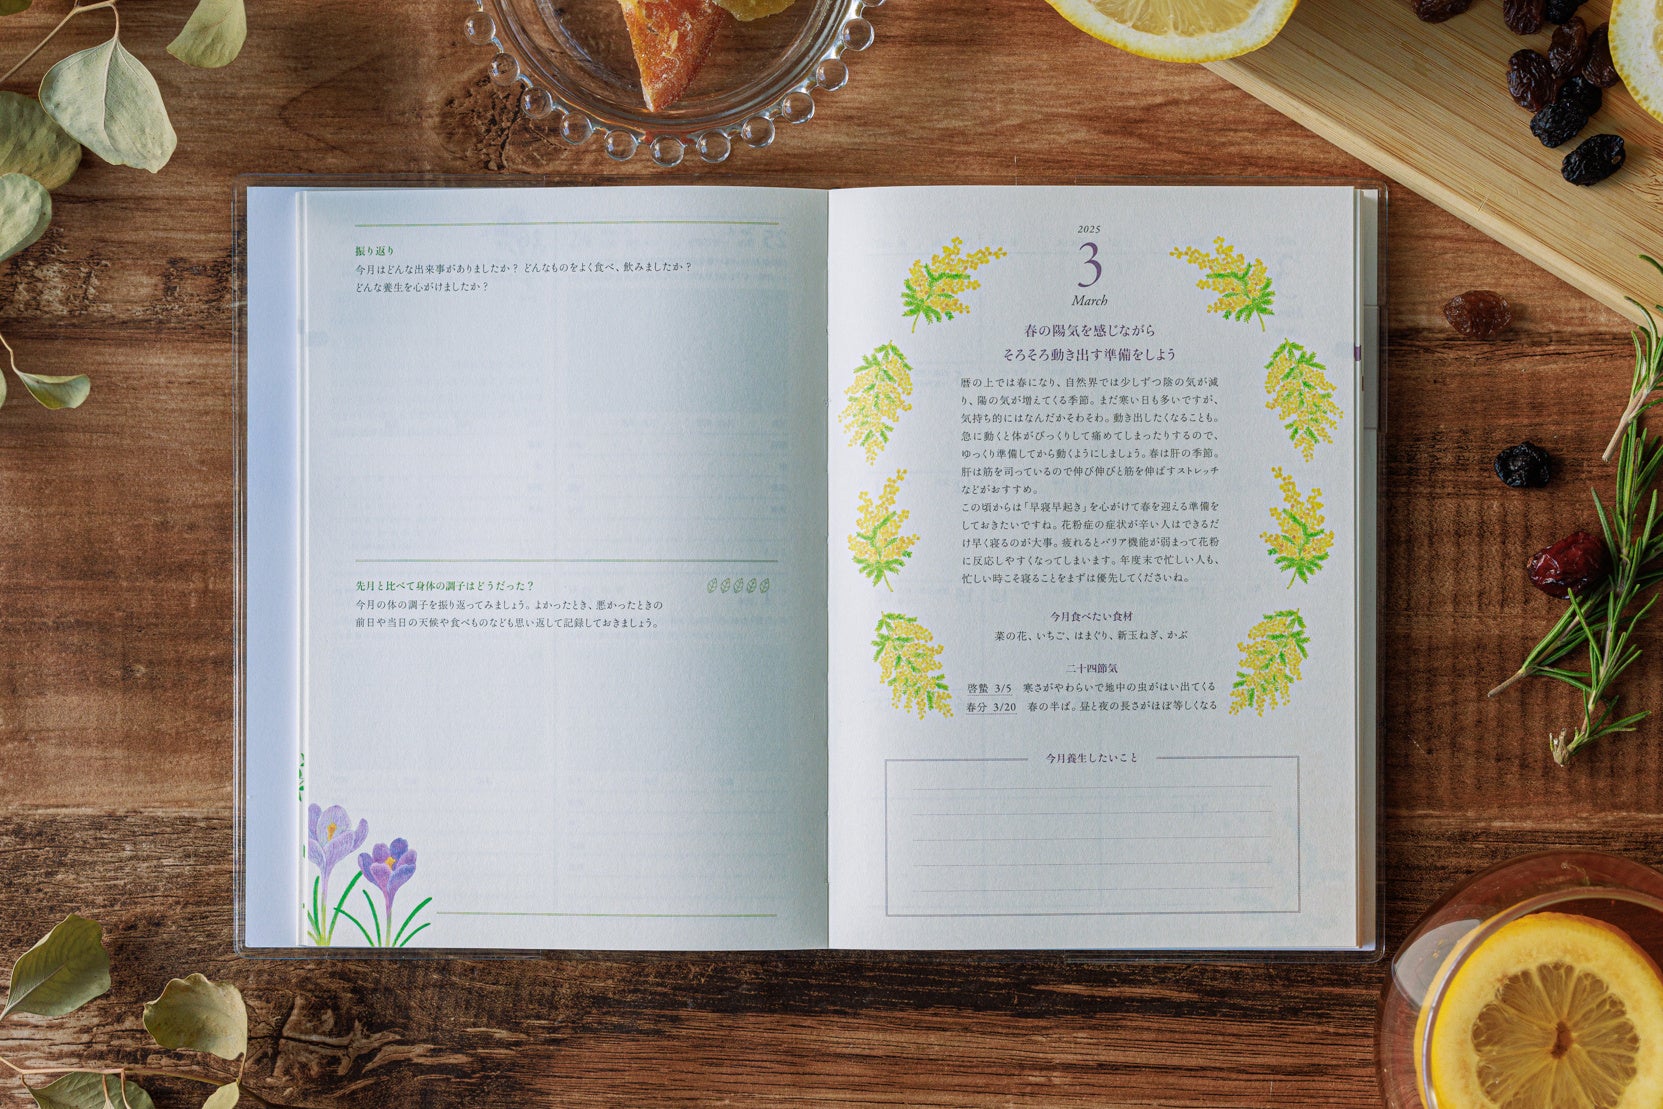 振り返り
今月はどんな出来事がありましたか？ どんなものをよく食べ、飲みましたか？
どんな養生を心がけましたか？
先月と比べて身体の調子はどうだった？
今月の体の調子を振り返ってみましょう。よかったとき、悪かったときの
前日や当日の天候や食べものなども思い返して記録しておきましょう。
2025
3
March
春の陽気を感じながら
そろそろ動き出す準備をしよう
暦の上では春になり、自然界では少しずつ陰の気が減
り、陽の気が増えてくる季節。まだ寒い日も多いですが、
気持ち的にはなんだかそわそわ。動き出したくなることも。
急に動くと体がびっくりして痛めてしまったりするので、
ゆっくり準備してから動くようにしましょう。春は肝の季節。
肝は筋を司っているので伸び伸びと筋を伸ばすストレッチ
などがおすすめ。
この頃からは「早寝早起き」を心がけて春を迎える準備を
しておきたいですね。花粉症の症状が辛い人はできるだ
け早く寝るのが大事。疲れるとバリア機能が弱まって花粉
に反応しやすくなってしまいます。年度末で忙しい人も、
忙しい時こそ寝ることをまずは優先してくださいね。
今月食べたい食材
菜の花、いちご、はまぐり、新玉ねぎ、かぶ
二十四節気
啓蟄 3/5 寒さがやわらいで地中の虫がはい出てくる
春分 3/20 春の半ば。昼と夜の長さがほぼ等しくなる
今月養生したいこと